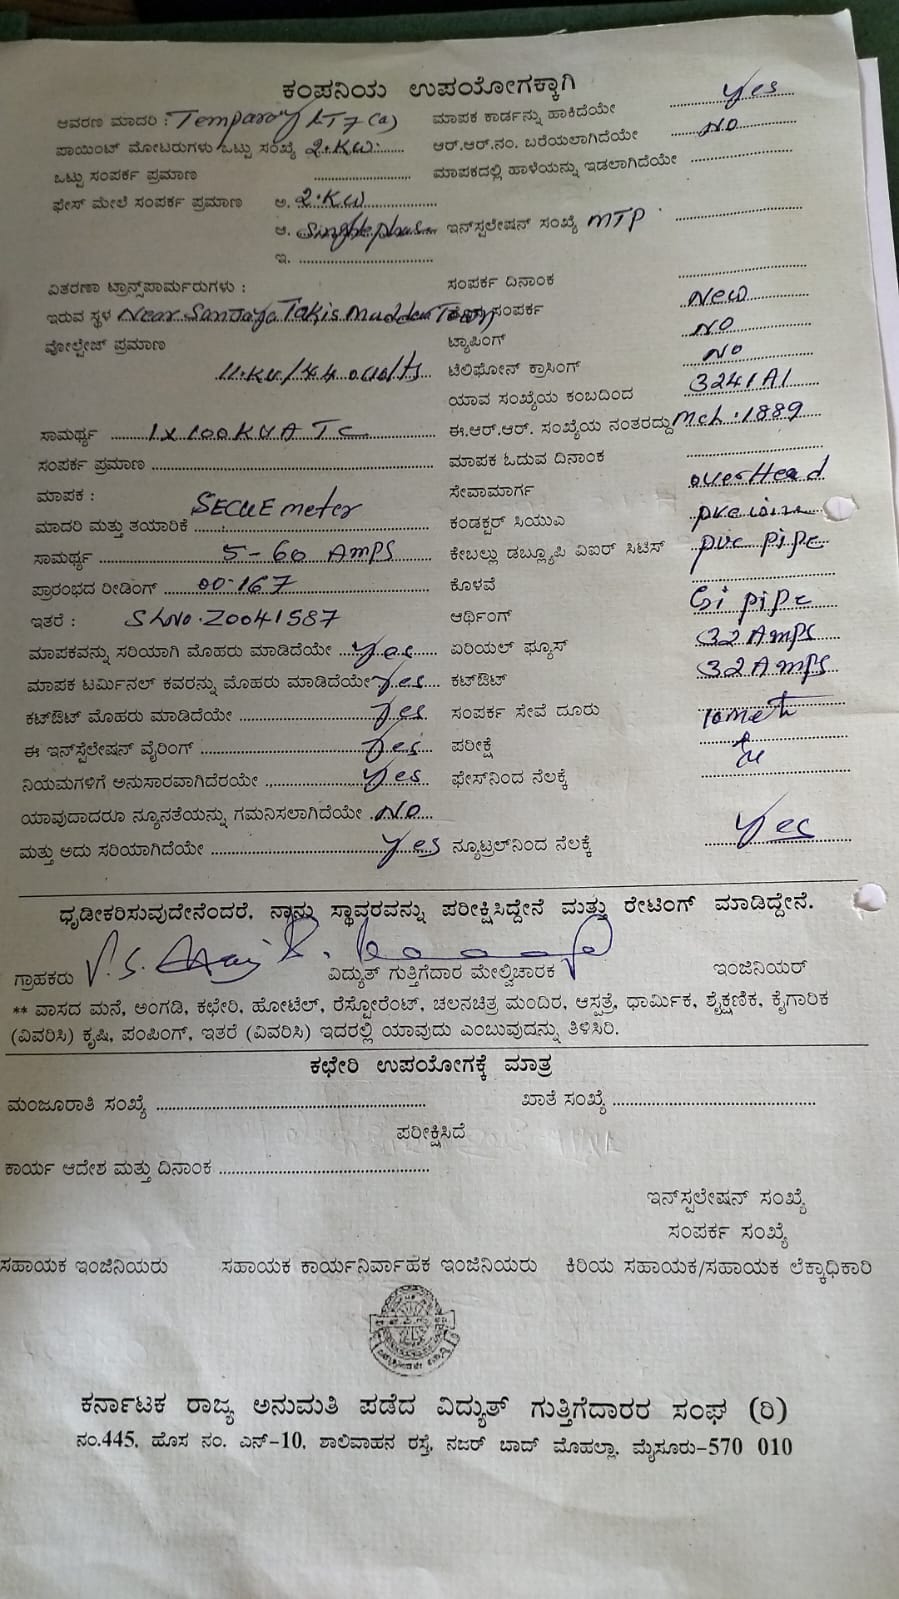 ಕಂಪನಿಯ ಉಪಯೋಗಕ್ಕಾಗಿ
ಆವರಣ ಮಾದರಿ : Temparory LT7(a) ಮಾಪಕ ಕಾರ್ಡನ್ನು ಹಾಕಿದೆಯೇ Yes
ಪಾಯಿಂಟ್ ಮೋಟರುಗಳು ಒಟ್ಟು ಸಂಖ್ಯೆ 2.KW. ಆರ್.ಆರ್.ನಂ. ಬರೆಯಲಾಗಿದೆಯೇ NO
ಒಟ್ಟು ಸಂಪರ್ಕ ಪ್ರಮಾಣ ಮಾಪಕದಲ್ಲಿ ಹಾಳೆಯನ್ನು ಇಡಲಾಗಿದೆಯೇ
ಫೇಸ್ ಮೇಲೆ ಸಂಪರ್ಕ ಪ್ರಮಾಣ ಅ. 2.KW
ಆ. ಇನ್‌ಸ್ಟಲೇಷನ್ ಸಂಖ್ಯೆ MTP
ಇ.
ವಿತರಣಾ ಟ್ರಾನ್ಸ್‌ಪಾರ್ಮರುಗಳು : ಸಂಪರ್ಕ ದಿನಾಂಕ
ಇರುವ ಸ್ಥಳ Near Sanjaya Takis Maddur Town ಸಂಪರ್ಕ New
ವೋಲ್ಟೇಜ್ ಪ್ರಮಾಣ ಟ್ಯಾಪಿಂಗ್ NO
11.KV/440Volts ಟೆಲಿಫೋನ್ ಕ್ರಾಸಿಂಗ್ NO
ಯಾವ ಸಂಖ್ಯೆಯ ಕಂಬದಿಂದ 3241A1
ಸಾಮರ್ಥ್ಯ 1X100KVA TC ಈ.ಆರ್.ಆರ್. ಸಂಖ್ಯೆಯ ನಂತರದ್ದು Mch:1889
ಸಂಪರ್ಕ ಪ್ರಮಾಣ ಮಾಪಕ ಓದುವ ದಿನಾಂಕ
ಮಾಪಕ : ಸೇವಾಮಾರ್ಗ overHead
ಮಾದರಿ ಮತ್ತು ತಯಾರಿಕೆ SECUE meter ಕಂಡಕ್ಟರ್ ಸಿಯುಎ pvc
ಸಾಮರ್ಥ್ಯ 5-60 AMPS ಕೇಬಲ್ಲು ಡಬ್ಲ್ಯೂಪಿ ವಿಐರ್ ಸಿಟಿಸ್ pvc pipe
ಪ್ರಾರಂಭದ ರೀಡಿಂಗ್ 00.167 ಕೊಳವೆ
ಇತರೆ : SLNo.Z0041587 ಆರ್ಥಿಂಗ್ Gi pipe
ಮಾಪಕವನ್ನು ಸರಿಯಾಗಿ ಮೊಹರು ಮಾಡಿದೆಯೇ Yes ಏರಿಯಲ್ ಫ್ಯೂಸ್ 32 Amps
ಮಾಪಕ ಟರ್ಮಿನಲ್ ಕವರನ್ನು ಮೊಹರು ಮಾಡಿದೆಯೇ Yes ಕಟ್‌ಔಟ್ 32 Amps
ಕಟ್‌ಔಟ್ ಮೊಹರು ಮಾಡಿದೆಯೇ Yes ಸಂಪರ್ಕ ಸೇವೆ ದೂರು
ಈ ಇನ್‌ಸ್ಟೆಲೇಷನ್ ವೈರಿಂಗ್ Yes ಪರೀಕ್ಷೆ
ನಿಯಮಗಳಿಗೆ ಅನುಸಾರವಾಗಿದೆರಯೇ Yes ಫೇಸ್‌ನಿಂದ ನೆಲಕ್ಕೆ
ಯಾವುದಾದರೂ ನ್ಯೂನತೆಯನ್ನು ಗಮನಿಸಲಾಗಿದೆಯೇ NO
ಮತ್ತು ಅದು ಸರಿಯಾಗಿದೆಯೇ Yes ನ್ಯೂಟ್ರಲ್‌ನಿಂದ ನೆಲಕ್ಕೆ Yes
ಧೃಡೀಕರಿಸುವುದೇನೆಂದರೆ, ನಾನು ಸ್ಥಾವರವನ್ನು ಪರೀಕ್ಷಿಸಿದ್ದೇನೆ ಮತ್ತು ರೇಟಿಂಗ್ ಮಾಡಿದ್ದೇನೆ.
ಗ್ರಾಹಕರು ವಿದ್ಯುತ್ ಗುತ್ತಿಗೆದಾರ ಮೇಲ್ವಿಚಾರಕ ಇಂಜಿನಿಯರ್
** ವಾಸದ ಮನೆ, ಅಂಗಡಿ, ಕಛೇರಿ, ಹೋಟೆಲ್, ರೆಸ್ಟೋರೆಂಟ್, ಚಲನಚಿತ್ರ ಮಂದಿರ, ಆಸ್ಪತ್ರೆ, ಧಾರ್ಮಿಕ, ಶೈಕ್ಷಣಿಕ, ಕೈಗಾರಿಕ
(ವಿವರಿಸಿ) ಕೃಷಿ, ಪಂಪಿಂಗ್, ಇತರೆ (ವಿವರಿಸಿ) ಇದರಲ್ಲಿ ಯಾವುದು ಎಂಬುವುದನ್ನು ತಿಳಿಸಿರಿ.
ಕಛೇರಿ ಉಪಯೋಗಕ್ಕೆ ಮಾತ್ರ
ಮಂಜೂರಾತಿ ಸಂಖ್ಯೆ ಖಾತೆ ಸಂಖ್ಯೆ
ಪರೀಕ್ಷಿಸಿದೆ
ಕಾರ್ಯ ಆದೇಶ ಮತ್ತು ದಿನಾಂಕ
ಇನ್‌ಸ್ಪಲೇಷನ್ ಸಂಖ್ಯೆ
ಸಂಪರ್ಕ ಸಂಖ್ಯೆ
ಸಹಾಯಕ ಇಂಜಿನಿಯರು ಸಹಾಯಕ ಕಾರ್ಯನಿರ್ವಾಹಕ ಇಂಜಿನಿಯರು ಕಿರಿಯ ಸಹಾಯಕ/ಸಹಾಯಕ ಲೆಕ್ಕಾಧಿಕಾರಿ
ಕರ್ನಾಟಕ ರಾಜ್ಯ ಅನುಮತಿ ಪಡೆದ ವಿದ್ಯುತ್ ಗುತ್ತಿಗೆದಾರರ ಸಂಘ (ರಿ)
ನಂ.445, ಹೊಸ ನಂ. ಎನ್-10, ಶಾಲಿವಾಹನ ರಸ್ತೆ, ನಜರ್ ಬಾದ್ ಮೊಹಲ್ಲಾ, ಮೈಸೂರು-570 010